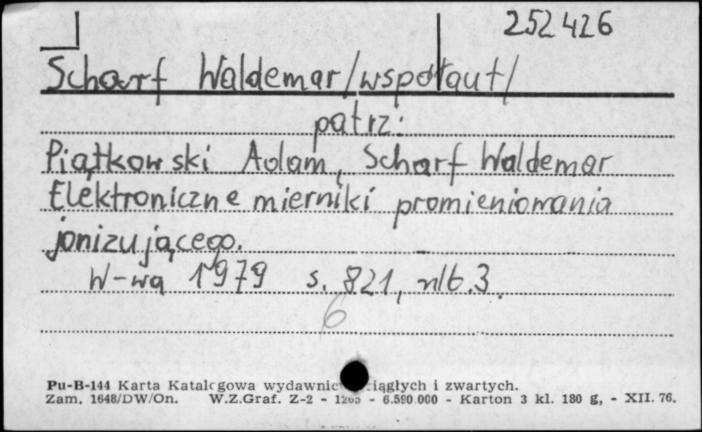 252426
Scharf Waldemar/współaut/
patrz:
Piątkowski Adam, Scharf Waldemar
Elektroniczne mierniki promieniowania
jonizującego.
W-wa 1979 s. 821, nlb.3.
6
Pu-B-144 Karta Katalogowa wydawnic ciągłych i zwartych.
Zam. 1648/DW/On. W.Z.Graf. Z-2 - 1265 - 6.590.000 - Karton 3 kl. 180 g, - XII. 76.